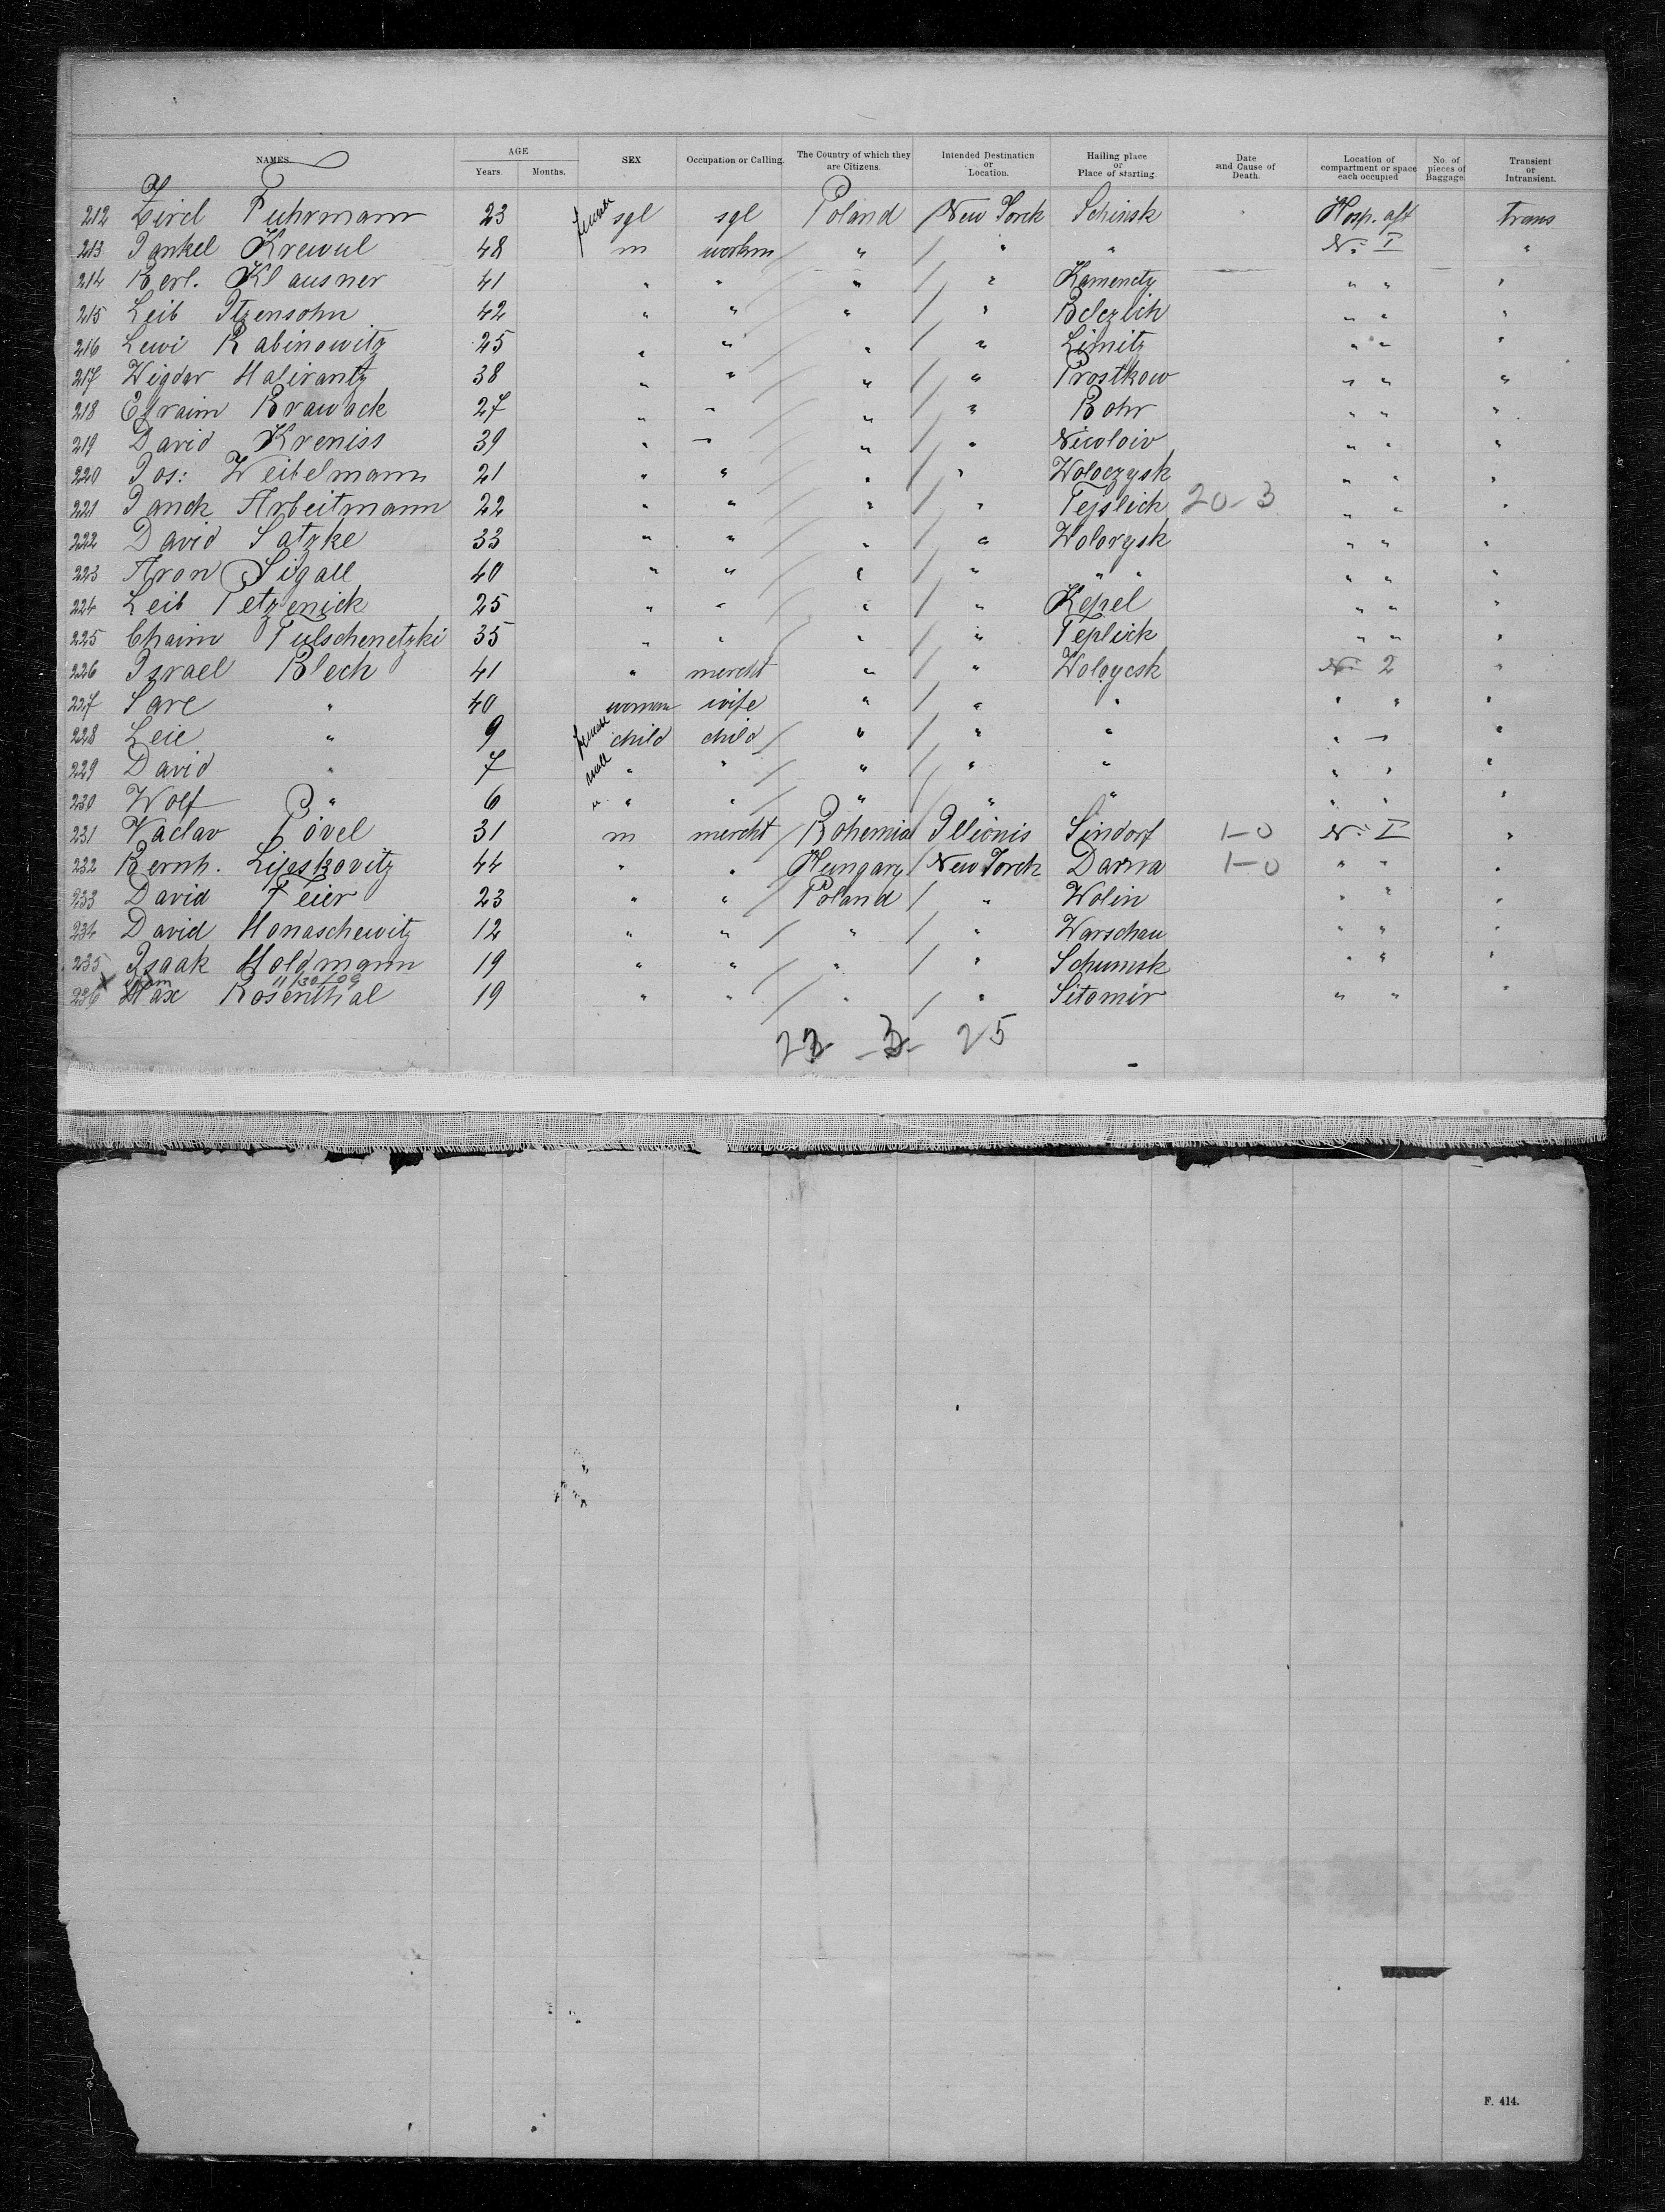 NAMES. AGE Years. Months. SEX Occupation or Calling. The Country of which they are Citizens. Intended Destination or Location. Hailing place or Place of starting. Date and Cause of Death. Location of compartment or space each occupied No. of pieces of Baggage. Transient or Intransient.
212 Zirel Fuhrmann 23 female sgl sgl Poland New Yorck Schinsk Hosp. aft trans
213 Jankel Krewul 48 m workm " / " " No. I "
214 Berl. Klausner 41 " " " / " Kamenetz " " "
215 Leib Itzensohn 42 " " " / " Belezlih " " "
216 Lewi Rabinowitz 25 " " " / " Limitz " " "
217 Wigdar Halirantz 38 " " " / " Prostkow " " "
218 Efraim Brawack 27 " " " / " Bohr " " "
219 David Kreniss 39 " " " / " Nicoloiv " " "
220 Jos: Weibelmann 21 " " " / " Woloczysk " " "
221 Janck Arbeitmann 22 " " " / " Tejslich 20-3 " " "
222 David Satzke 33 " " " / " Wolorysk " " "
223 Aron Sigall 40 " " " / " " " " " "
224 Leib Petzenick 25 " " " / " Kepel " " "
225 Chaim Tulschenetzki 35 " " " / " Teplick " " "
226 Israel Blech 41 " mercht " / " Wologcsk No 2 "
227 Sare " 40 woman wife " / " " " " "
228 Leie " 9 female child child / " / " " " " "
229 David " 7 male " " / " / " " " " "
230 Wolf " 6 " " " / " / " " " " "
231 Vaclav Pövel 31 m mercht Bohemia Illionis Sindorf 1-0 No. I "
232 Bernh. Lijeskovitz 44 " " Hungary New Yorck Darna 1-0 " " "
233 David Feier 23 " " Poland / " Wolin " " "
234 David Monaschewitz 12 " " / " / " Warschau " " "
235 Isaak Holdmann 19 " " / " / " Schumsk " " "
11/30/09
236 X Max Rosenthal 19 " " / " / " Sitomir " " "
22 - 3 - 25
F. 414.